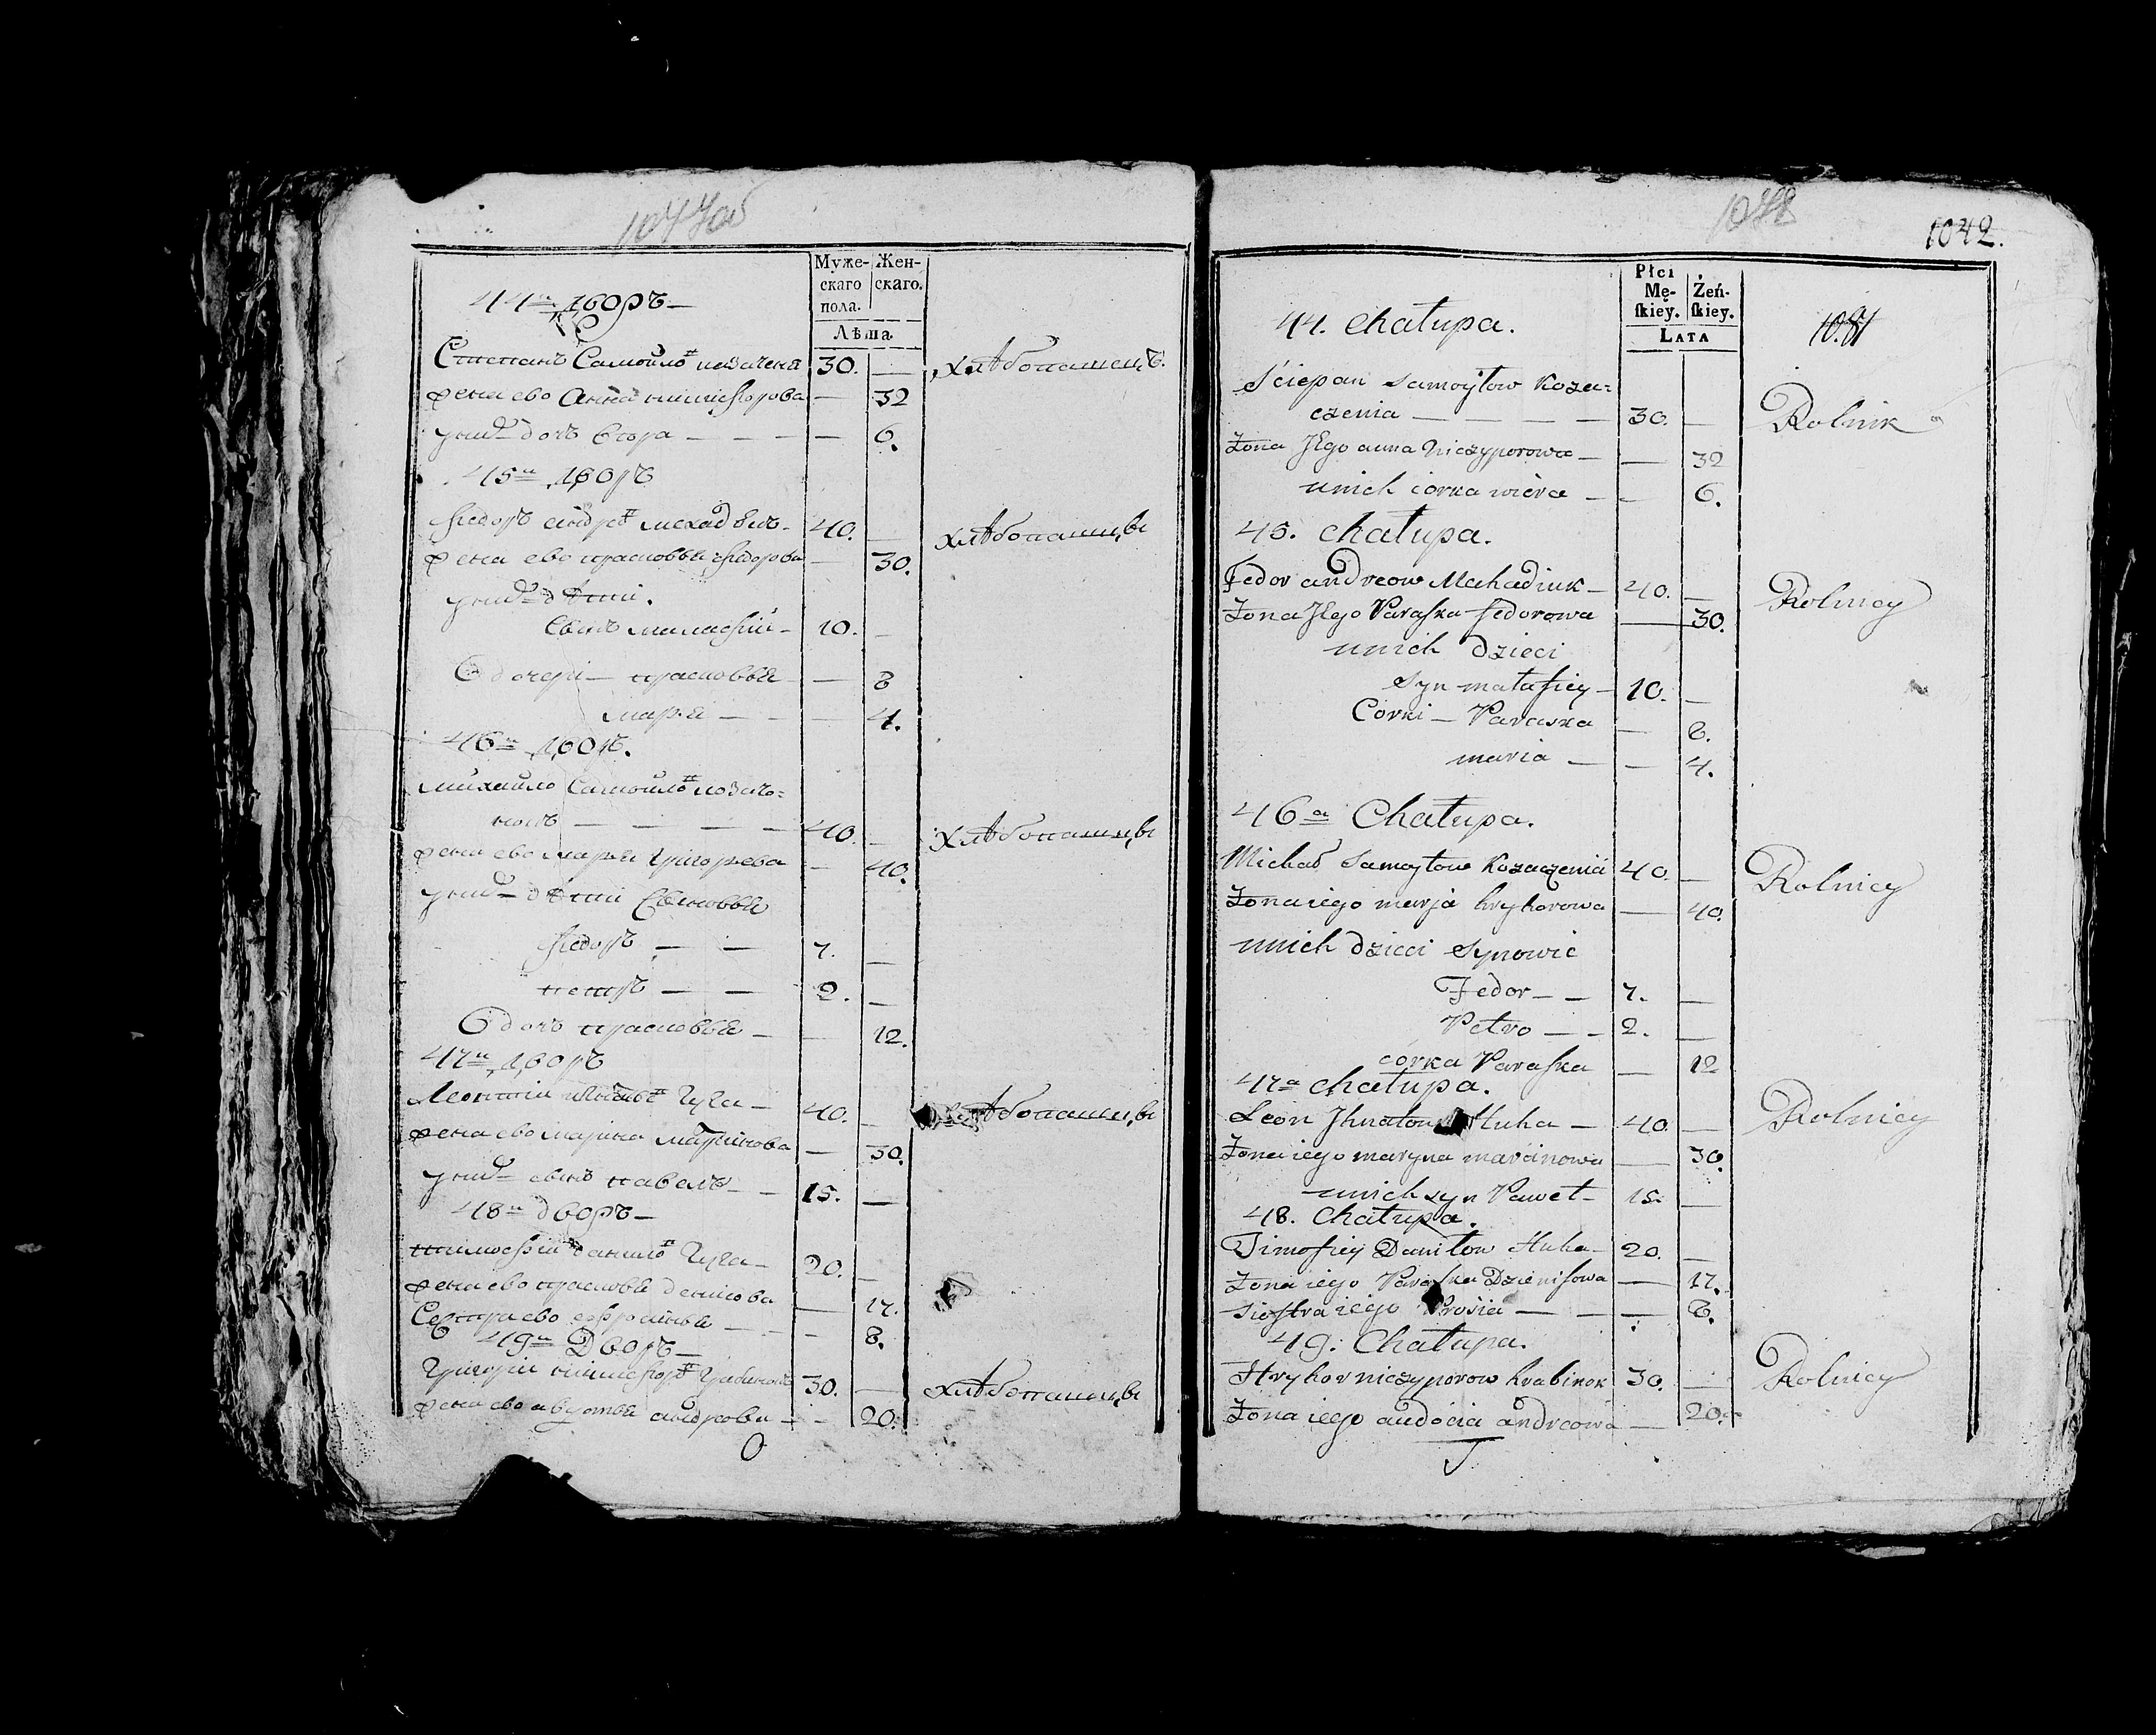 1077об
Муже-
скаго
пола.
Жен-
скаго.
Лѣта
44й дворъ —
Степанъ Самойло козаченя 30. — хлѣбопашецъ.
жена ево Анна ничипорова — 32
у них дочь — — — — 6.
45й дворъ
Федоръ андре 40. — хлѣбопашцы
жена ево прасковья федорова — 30.
у них дѣти.
Сынъ малафій — 10. —
дочери — прасковья — — 8
марья — — — 4.
46й дворъ.
михайло Самойло козаче=
нокъ — — — — 40. — хлѣбопашцы
жена ево марья григорьева — 40.
у них дѣти Сыновья
Федоръ — — 7. —
петръ — — 2. —
дочь прасковья — — 12.
47й дворъ
Леонтій Гуга — 40. — хлѣбопашцы
жена ево марина мартинова — 30.
у них сынъ павелъ — — 15. —
48й дворъ —
тимофій данило Гуга — 20. —
жена ево прасковья денисова — 17.
Сестра ево ефросинья — — — 8.
49й Дворъ —
Григорій ничипоръ 30. — хлѣбопашцы
жена ево авдотья андреова — — 20.
1078
1042.
Płci
Mę-
ſkiey.
Żeń-
ſkiey.
Lata
1041
44. Chałupa.
Sciepan Samoyłow Koza=
czenia — — — — 30. — Rolnik
Zona Jego anna Niczyporowa — — 32
unich corka wiera — — 6.
45. Chałupa.
Fedor andreow Mahadiuk — 40. — Rolnicy
Zona Jego Paraſka fedorowa — 30.
unich Dzieci
Syn małafiey — 10. —
Córki — Paraska — 8.
maria — — 4.
46a Chałupa.
Michał Samoyłow Kozaczenia 40. — Rolnicy
Zona iego marja hryhorowa — 40.
unich dzieci Synowie
Fedor — — 7. —
Petro — — 2. —
córka Paraſka — 12
47a Chałupa.
Leon Jhnatow Huha — 40. — Rolnicy
Zona iego maryna marcinowa — 30.
unich syn Paweł — 15. —
48. Chałupa.
Timofiey Daniłow Huha — 20. —
Zona iego Paraſka Dzieniſowa — 17.
Sioſtra iego Prosia — — — 8.
49. Chałupa.
Hryhor niczyporow hrabinok 30. — Rolnicy
Zona iego audocia andreowa — 20.